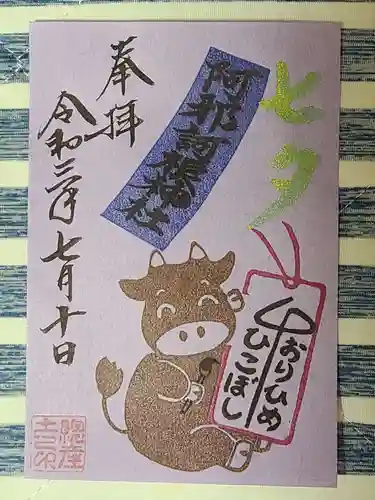 七夕
阿那訶根神社
奉拝
令和三年七月十日
おりひめ
ひこぼし